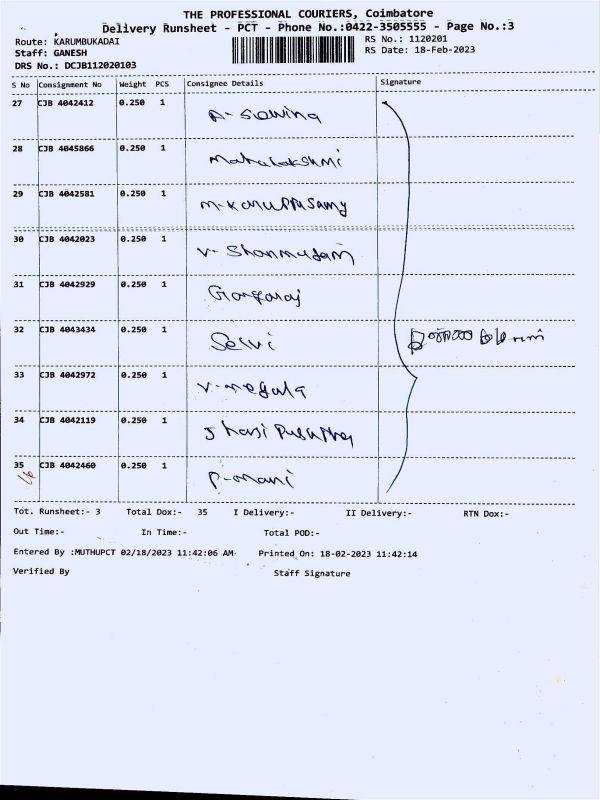 THE PROFESSIONAL COURIERS, Coimbatore
Delivery Runsheet - PCT - Phone No.:0422-3505555 - Page No.:3
Route: KARUMBUKADAI
RS No.: 1120201
Staff: GANESH
RS Date: 18-Feb-2023
DRS No.: DCJB112020103
S No Consignment No Weight PCS Consignee Details Signature
27 CJB 4042412 0.250 1 A- Sowina
28 CJB 4045866 0.250 1 Mahalakshmi
29 CJB 4042581 0.250 1 M-Karuppusamy
30 CJB 4042023 0.250 1 V- Shanmugam
31 CJB 4042929 0.250 1
32 CJB 4043434 0.250 1 Selvi
33 CJB 4042972 0.250 1 V-megala
34 CJB 4042119 0.250 1
35 CJB 4042460 0.250 1 P-mani
Tot. Runsheet:- 3 Total Dox:- 35 I Delivery:- II Delivery:- RTN Dox:-
Out Time:- In Time:- Total POD:-
Entered By :MUTHUPCT 02/18/2023 11:42:06 AM Printed On: 18-02-2023 11:42:14
Verified By Staff Signature